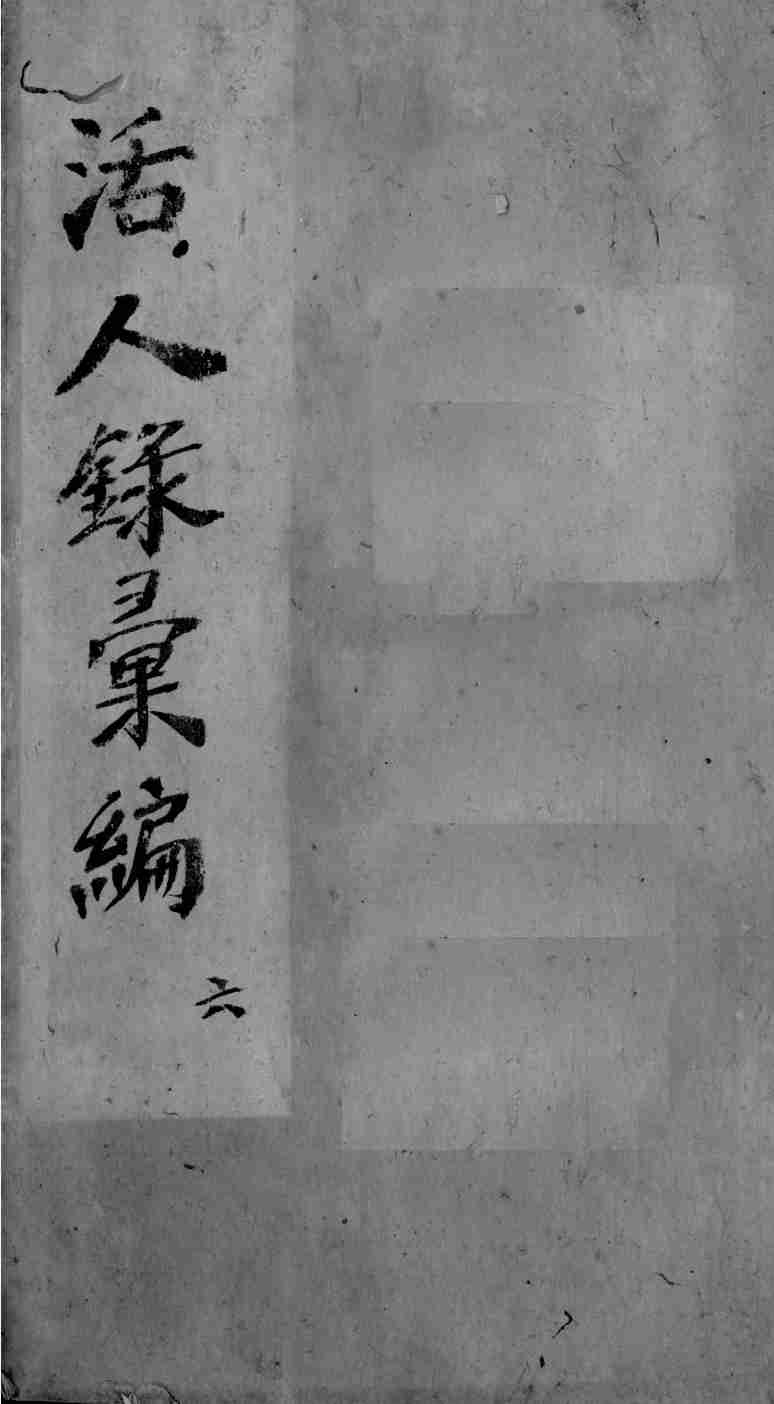 活人錄彙編
六